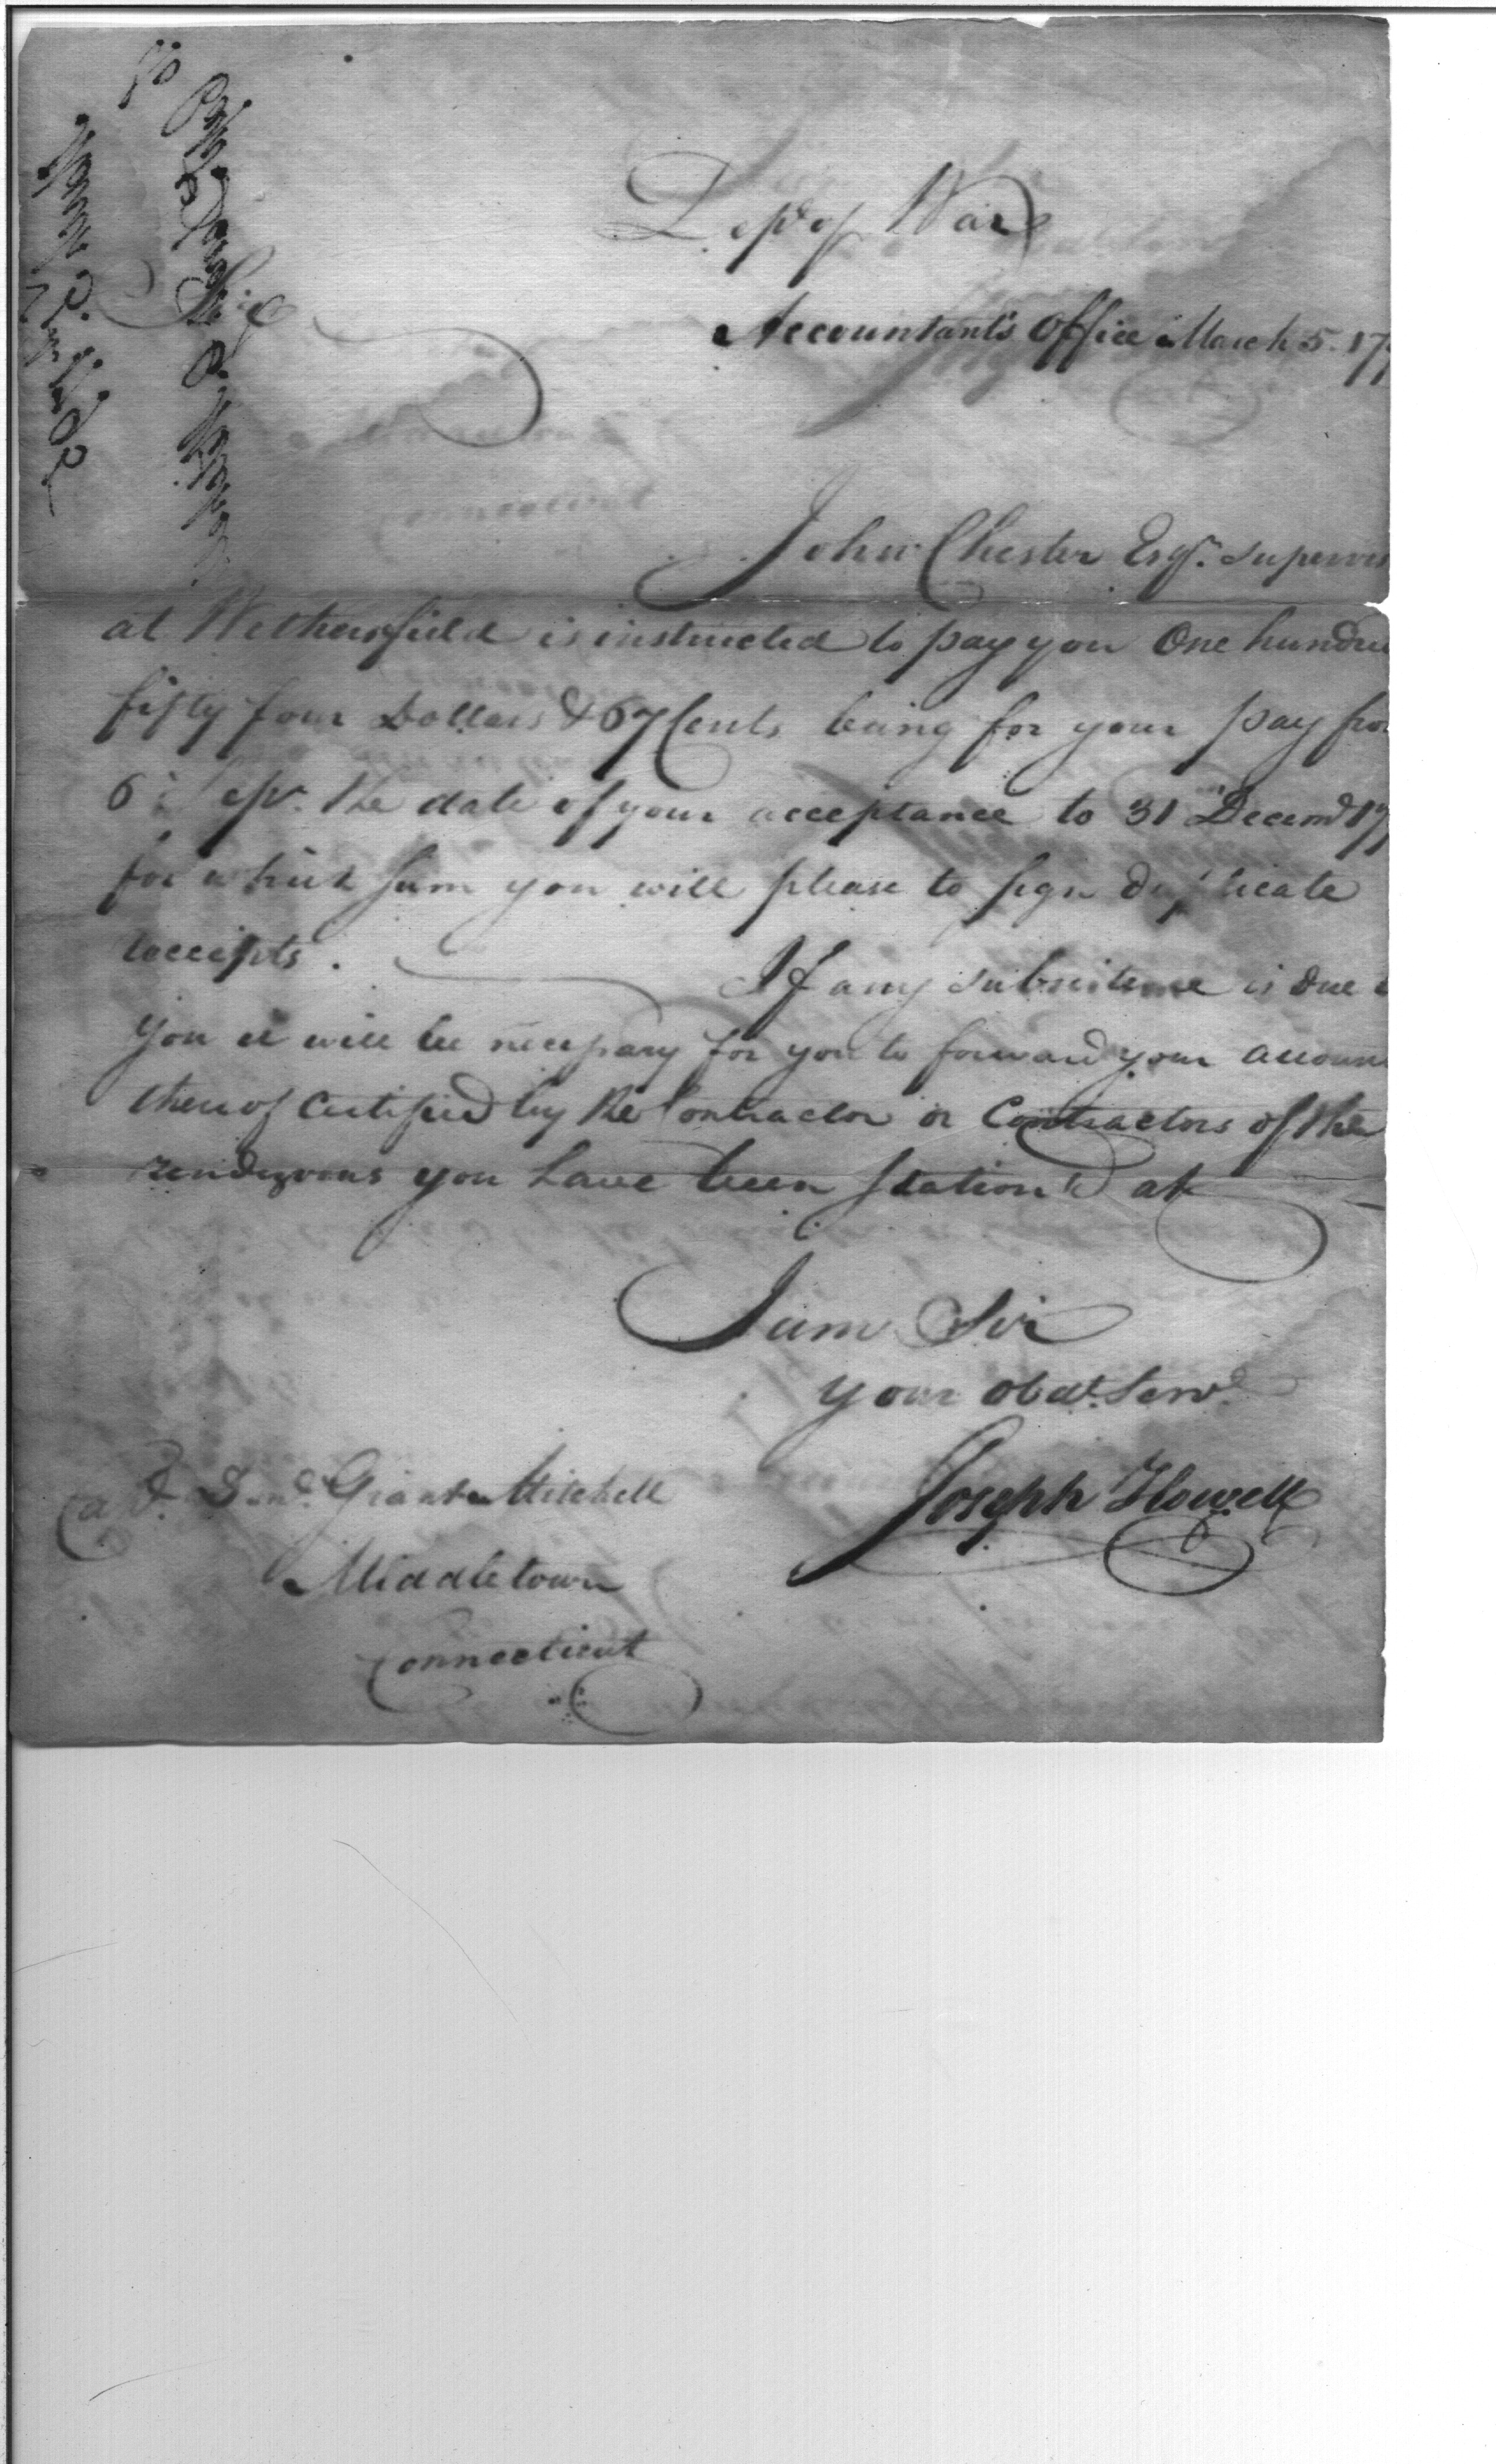 Dept of War
Accountant's Office March 5. 17
Sir
John Chester Esqr. Supervis
at Wethersfield is instructed to pay you One hundre
fifty four Dollars & 67 Cents being for your pay fro
6 Sepr. the date of your acceptance to 31 Decemr 17
for which sum you will please to sign duplicate
receipts.
If any subsistence is due
you it will be necessary for you to forward your accoun
thereof certified by the Contractor or Contractors of the
rendezvous you have been Station'd at
I am Sir
your obdt. Servt
Capt. Grant Mitchell
Joseph Howell
Middletown
Connecticut